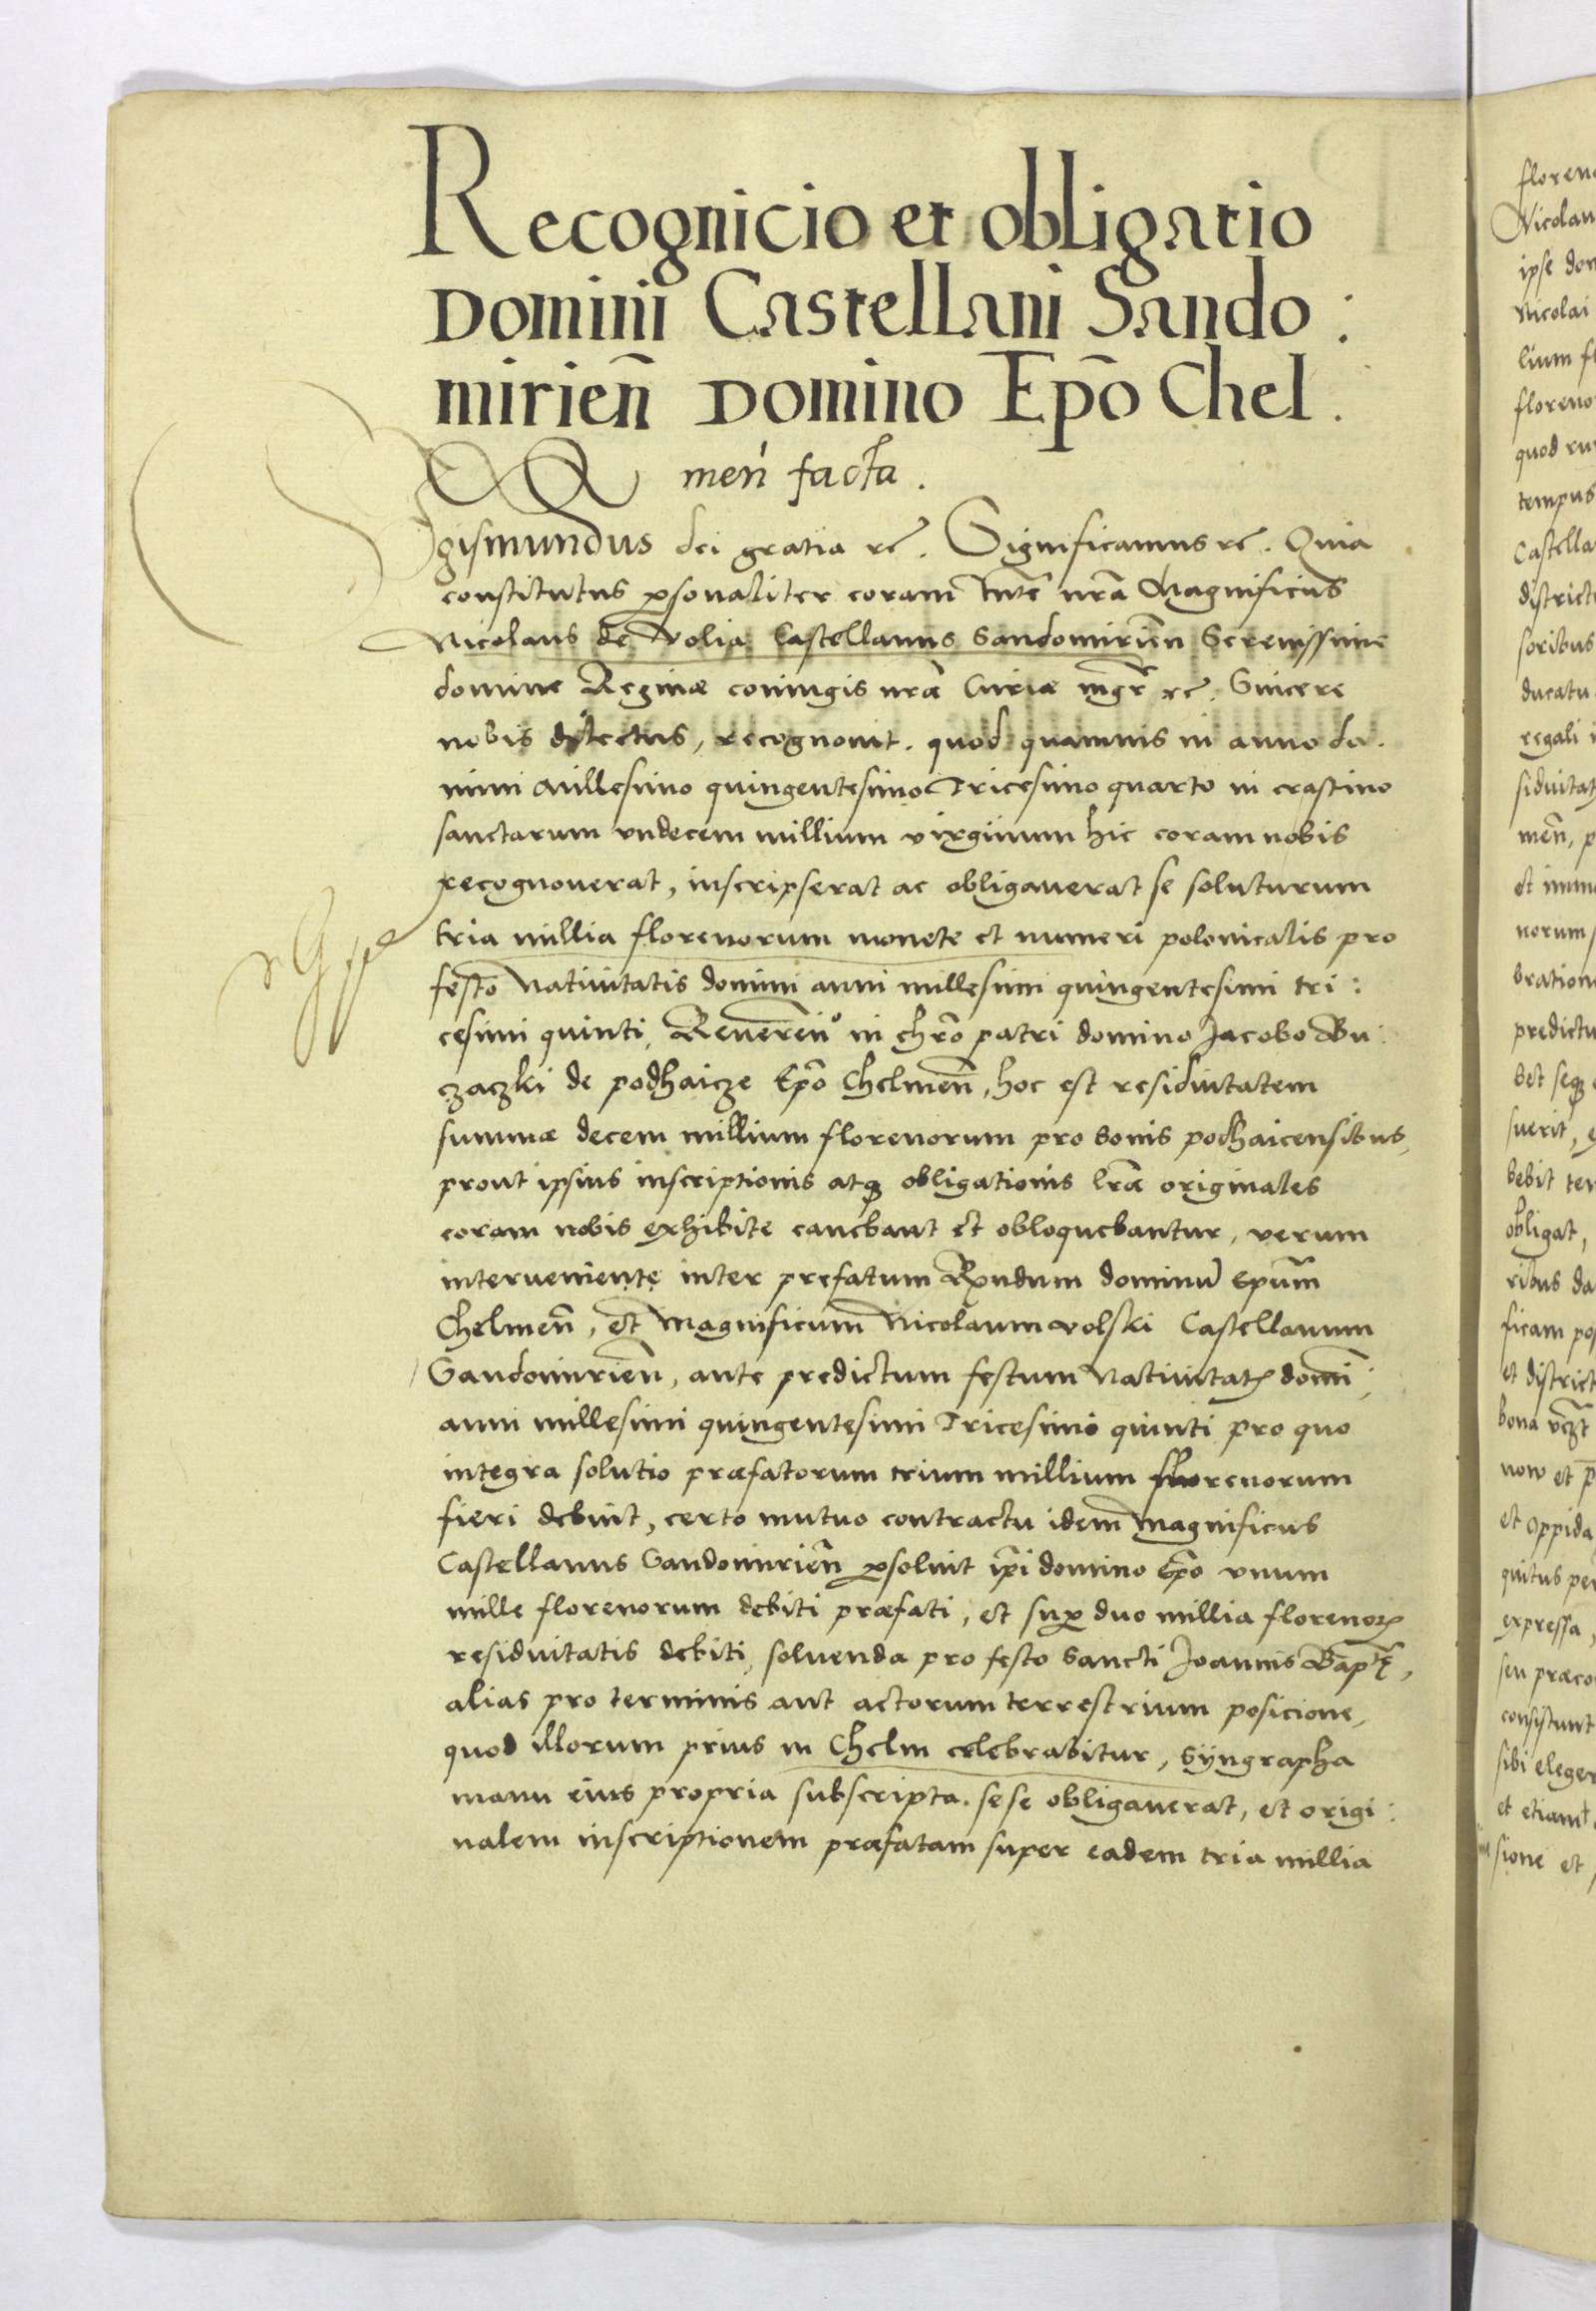 Recognicio et obligatio
Domini Castellani Sando:
mirien̄ Domino Ep̄o Chel.
men̄ facta.
Sigismundus dei gratia rc̄. Significamus rc̄. Quia
constitutus ꝑsonaliter coram nr̄a Magnificus
Nicolaus de Volia Castellanus Sandomirien̄ Serenissime
domine Reginæ coniugis nr̄æ Curiæ mgr̄ rc̄. Sincere
nobis dilectus, recognouit. quod quamuis in anno do.
mini Millesimo quingentesimo Tricesimo quarto in crastino
sanctarum vndecem millium virginum hic coram nobis
recognouerat, inscripserat ac obligauerat se soluturum
tria millia florenorum monete et numeri polonicalis pro
festo Natiuitatis domini anni millesimi quingentesimi tri:
cesimi quinti, Reueren̄º in chr̄o patri domino Jacobo Bu:
czaczki de podhaicze Ep̄o Chelmen̄, hoc est residuitatem
summæ decem millium florenorum pro bonis podhaicensibus,
prout ipsius inscriptionis atqꝫ obligationis lr̄æ originales
coram nobis exhibite canebant et obloquebantur, verum
interueniente inter prefatum Rn̄dum dominū Epūm
Chelmen̄, et Magnificum Nicolaum volski Castellanum
Sandomirien̄, ante predictum festum Natiuitatꝭ domi:
anni millesimi quingentesimi Tricesimi quinti pro quo
integra solutio præfatorum trium millium florenorum
fieri debuit, certo mutuo contractu idem Magnificus
Castellanus Sandomirien̄ ꝑsoluit ip̄i domino Ep̄o vnum
mille florenorum debiti præfati, et suꝑ duo millia florenoꝝ
residuitatis debiti, soluenda pro festo Sancti Joannis Bapt̄ę,
alias pro terminis aut actorum terrestrium posicione,
quod illorum prius in Chelm celebrabitur, Syngrapha
manu eius propria subscripta. sese obligauerat, et origi:
nalem inscriptionem præfatam super eadem tria millia
Nicolau
ipse dom
Nicolai
lium fl
floreno
tempus
Castella
district
soribus
ducatu
regali
siduitat
men̄, p
norum
bration
predictu
obligat,
ficam
et district
et oppida
expressa,
consistunt
sibi eleger
sione et